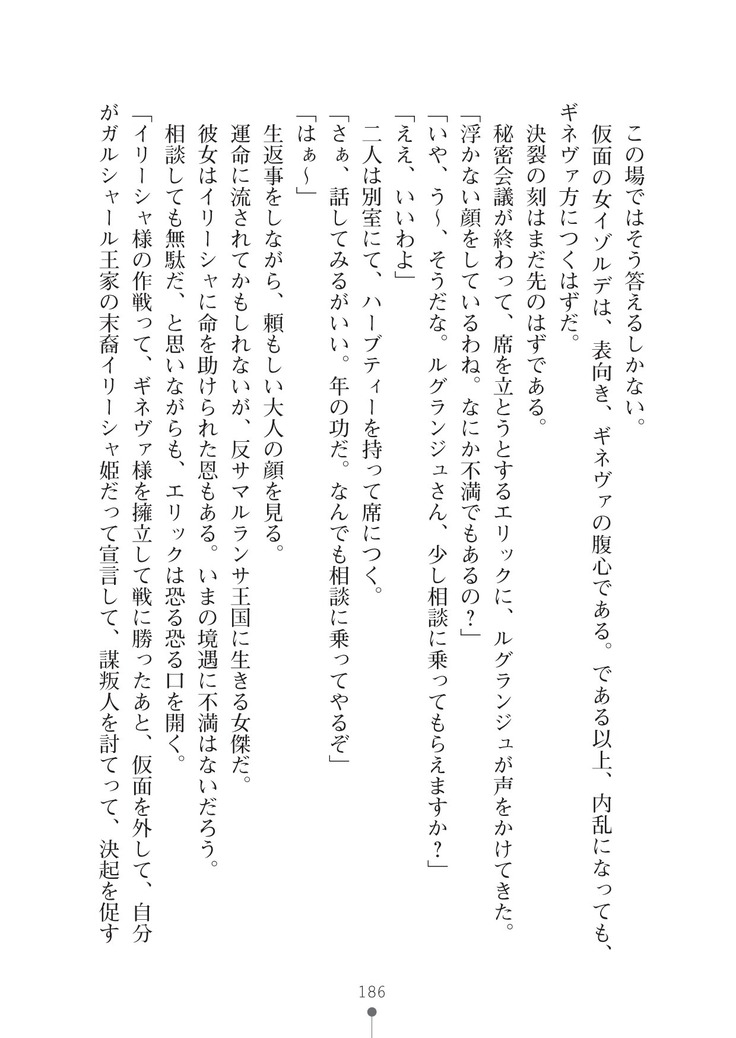 この場ではそう答えるしかない。
仮面の女イゾルデは、表向き、ギネヴァの腹心である。である以上、内乱になっても、
ギネヴァ方につくはずだ。
決裂の刻はまだ先のはずである。
秘密会議が終わって、席を立とうとするエリックに、ルグランジュが声をかけてきた。
「浮かない顔をしているわね。なにか不満でもあるの？」
「いや、う～、そうだな。ルグランジュさん、少し相談に乗ってもらえますか？」
「ええ、いいわよ」
二人は別室にて、ハーブティーを持って席につく。
「さぁ、話してみるがいい。年の功だ。なんでも相談に乗ってやるぞ」
「はぁ～」
生返事をしながら、頼もしい大人の顔を見る。
運命に流されてかもしれないが、反サマルランサ王国に生きる女傑だ。
彼女はイリーシャに命を助けられた恩もある。いまの境遇に不満はないだろう。
相談しても無駄だ、と思いながらも、エリックは恐る恐る口を開く。
「イリーシャ様の作戦って、ギネヴァ様を擁立して戦に勝ったあと、仮面を外して、自分
がガルシャール王家の末裔イリーシャ姫だって宣言して、謀叛人を討てって、決起を促す
186